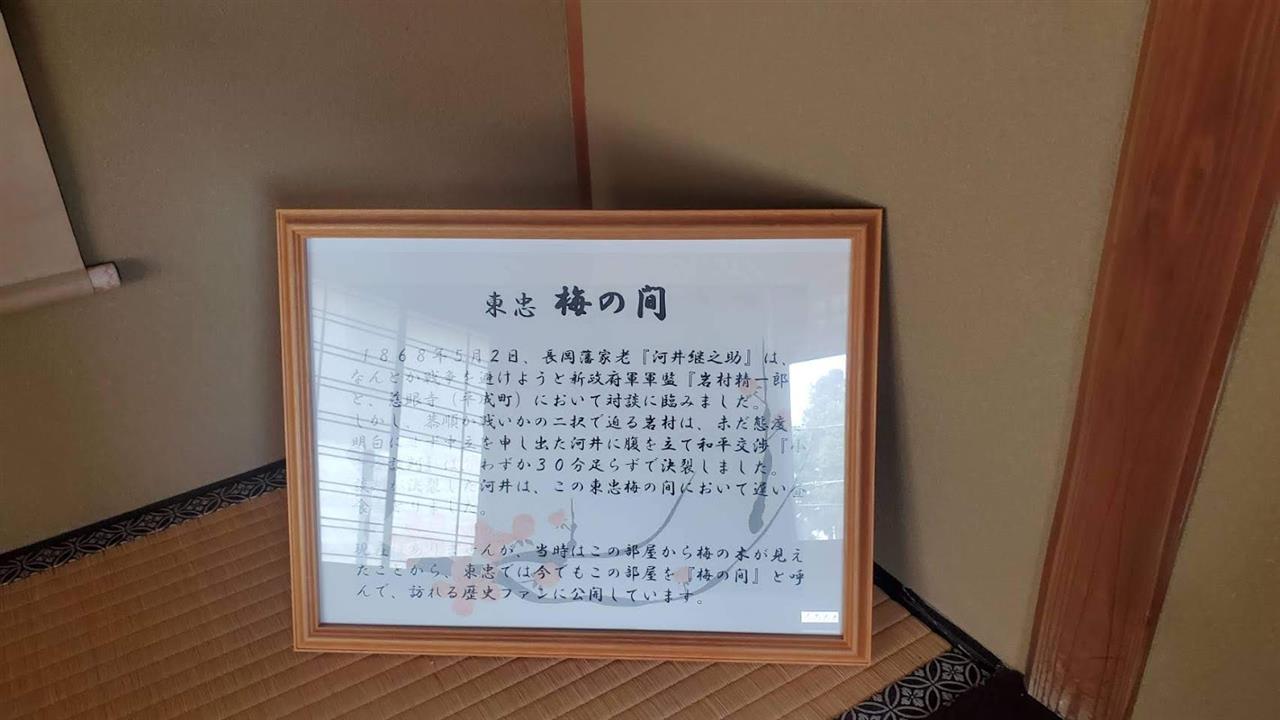 東忠 梅の間
1868年5月2日、長岡藩家老『河井継之助』は、
なんとか戦争を避けようと新政府軍軍監『岩村精一郎
と、慈眼寺（平成町）において対談に臨みました。
しかし、恭順か戦いかの二択で迫る岩村は、未だ態度
明白にせず中立を申し出た河井に腹を立て和平交渉『小
わずか30分足らずで決裂しました。
決裂した河井は、この東忠梅の間において遅い
食 ました。
現在はありませんが、当時はこの部屋から梅の木が見え
たことから、東忠では今でもこの部屋を『梅の間』と呼
んで、訪れる歴史ファンに公開しています。